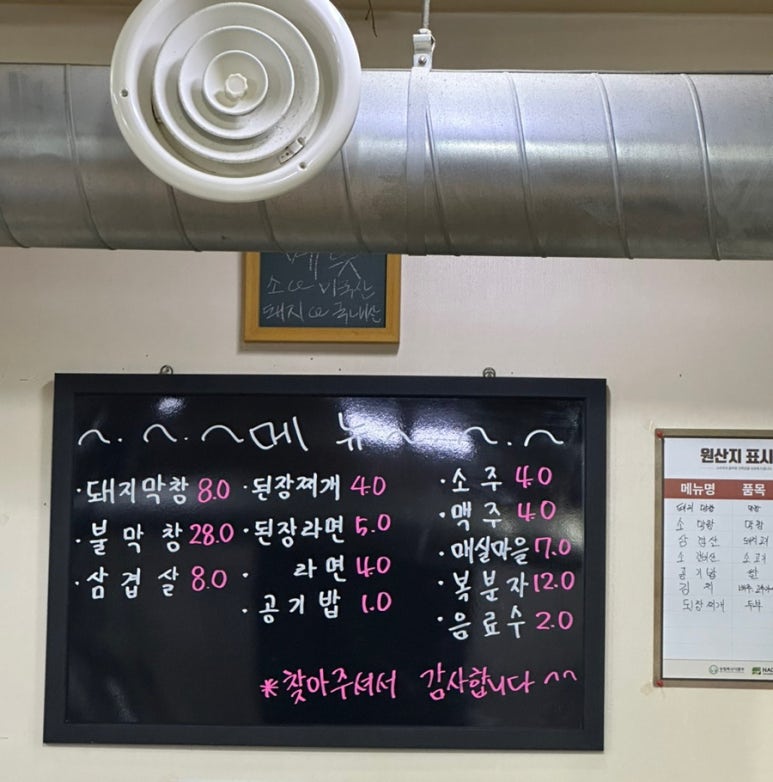 소 co 미국산
돼지 co 국내산
~.~.~메뉴~.~.~
·돼지막창 8.0
·불막창 28.0
·삼겹살 8.0
·된장찌개 4.0
·된장라면 5.0
·라면 4.0
·공기밥 1.0
·소주 4.0
·맥주 4.0
·매실마을 7.0
·복분자 12.0
·음료수 2.0
*찾아주셔서 감사합니다 ^^
원산지 표시
메뉴명 품목
돼지 막창 막창
소 막창 막창
삼겹살
공기밥 쌀
김치
된장찌개 두부